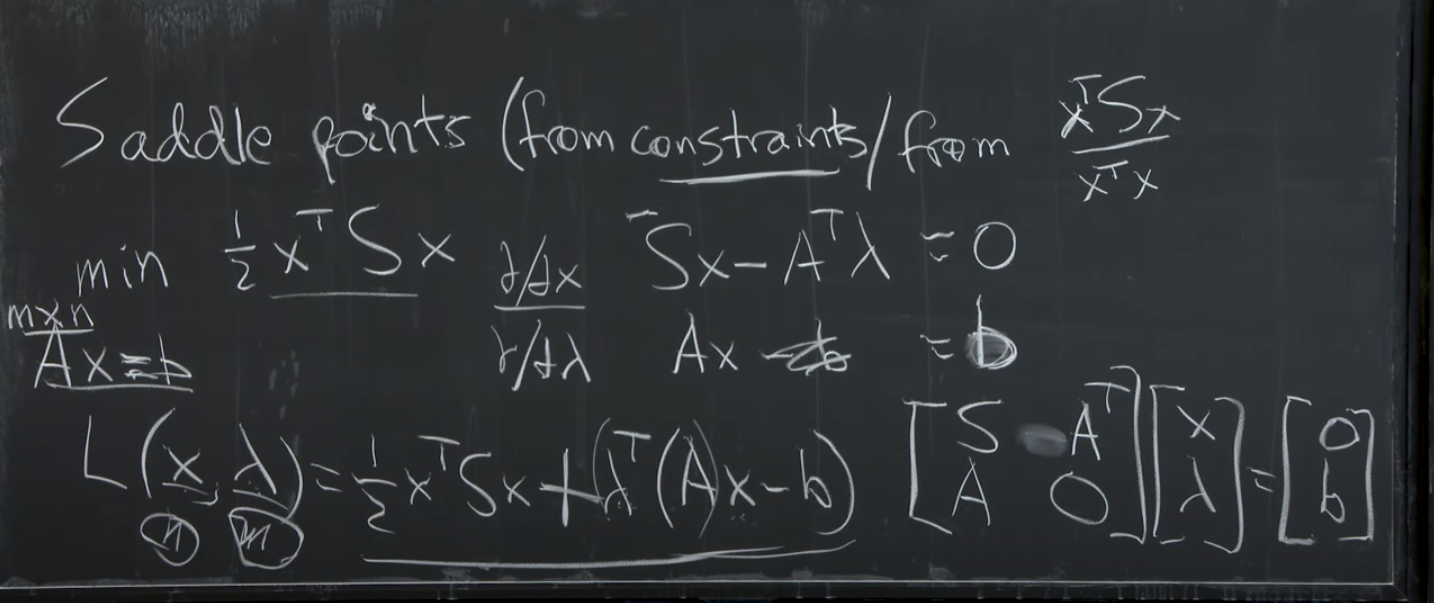 Saddle points (from constraints / from xᵀSx / xᵀx
min ½ xᵀSx ∂/∂x Sx − Aᵀλ = 0
m×n
Ax = b ∂/∂λ Ax = b
L(x, λ) = ½ xᵀSx + λᵀ(Ax − b) [S Aᵀ; A 0] [x; λ] = [0; b]
n m